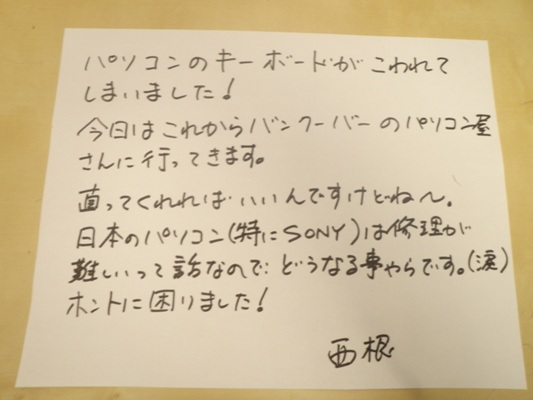 パソコンのキーボードがこわれて
しまいました!
今日はこれからバンクーバーのパソコン屋
さんに行ってきます。
直ってくれればいいんですけどね〜。
日本のパソコン(特にSONY)は修理が
難しいって話なので…どうなる事やらです。(涙)
ホントに困りました!
西根